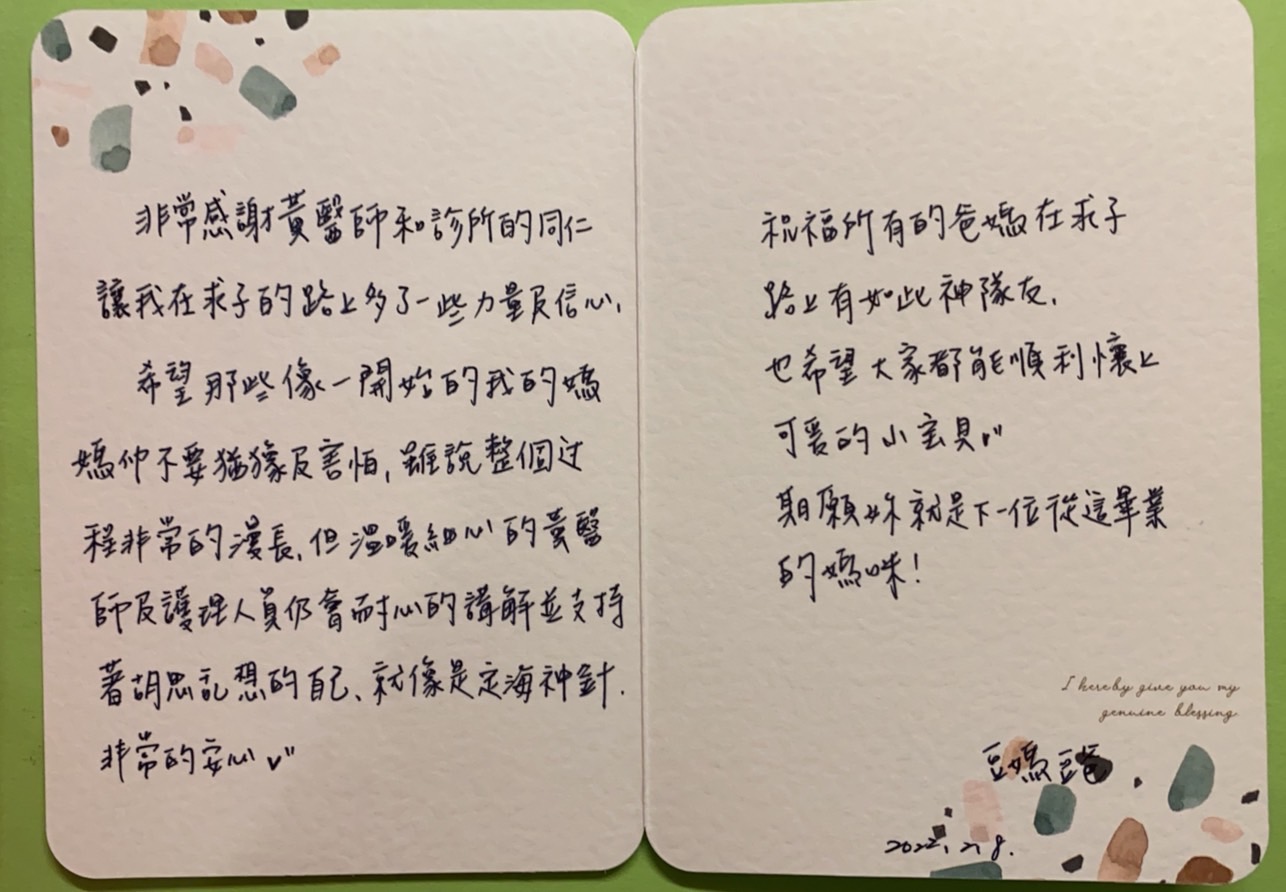 非常感謝黃醫師和診所的同仁
讓我在求子的路上多了一些力量及信心,
希望那些像一開始的我的媽
媽們不要猶豫及害怕,雖說整個过
程非常的漫長,但溫暖細心的黃醫
師及護理人員仍會耐心的講解並支持
著胡思亂想的自己、就像是定海神針.
非常的安心
祝福所有的爸媽在求子
路上有如此神隊友.
也希望大家都能順利懷上
可愛的小宝貝
期願妳就是下一位從這畢業
的媽咪!
I hereby give you my
genuine blessing.
豆媽豆爸
2022.2.8.